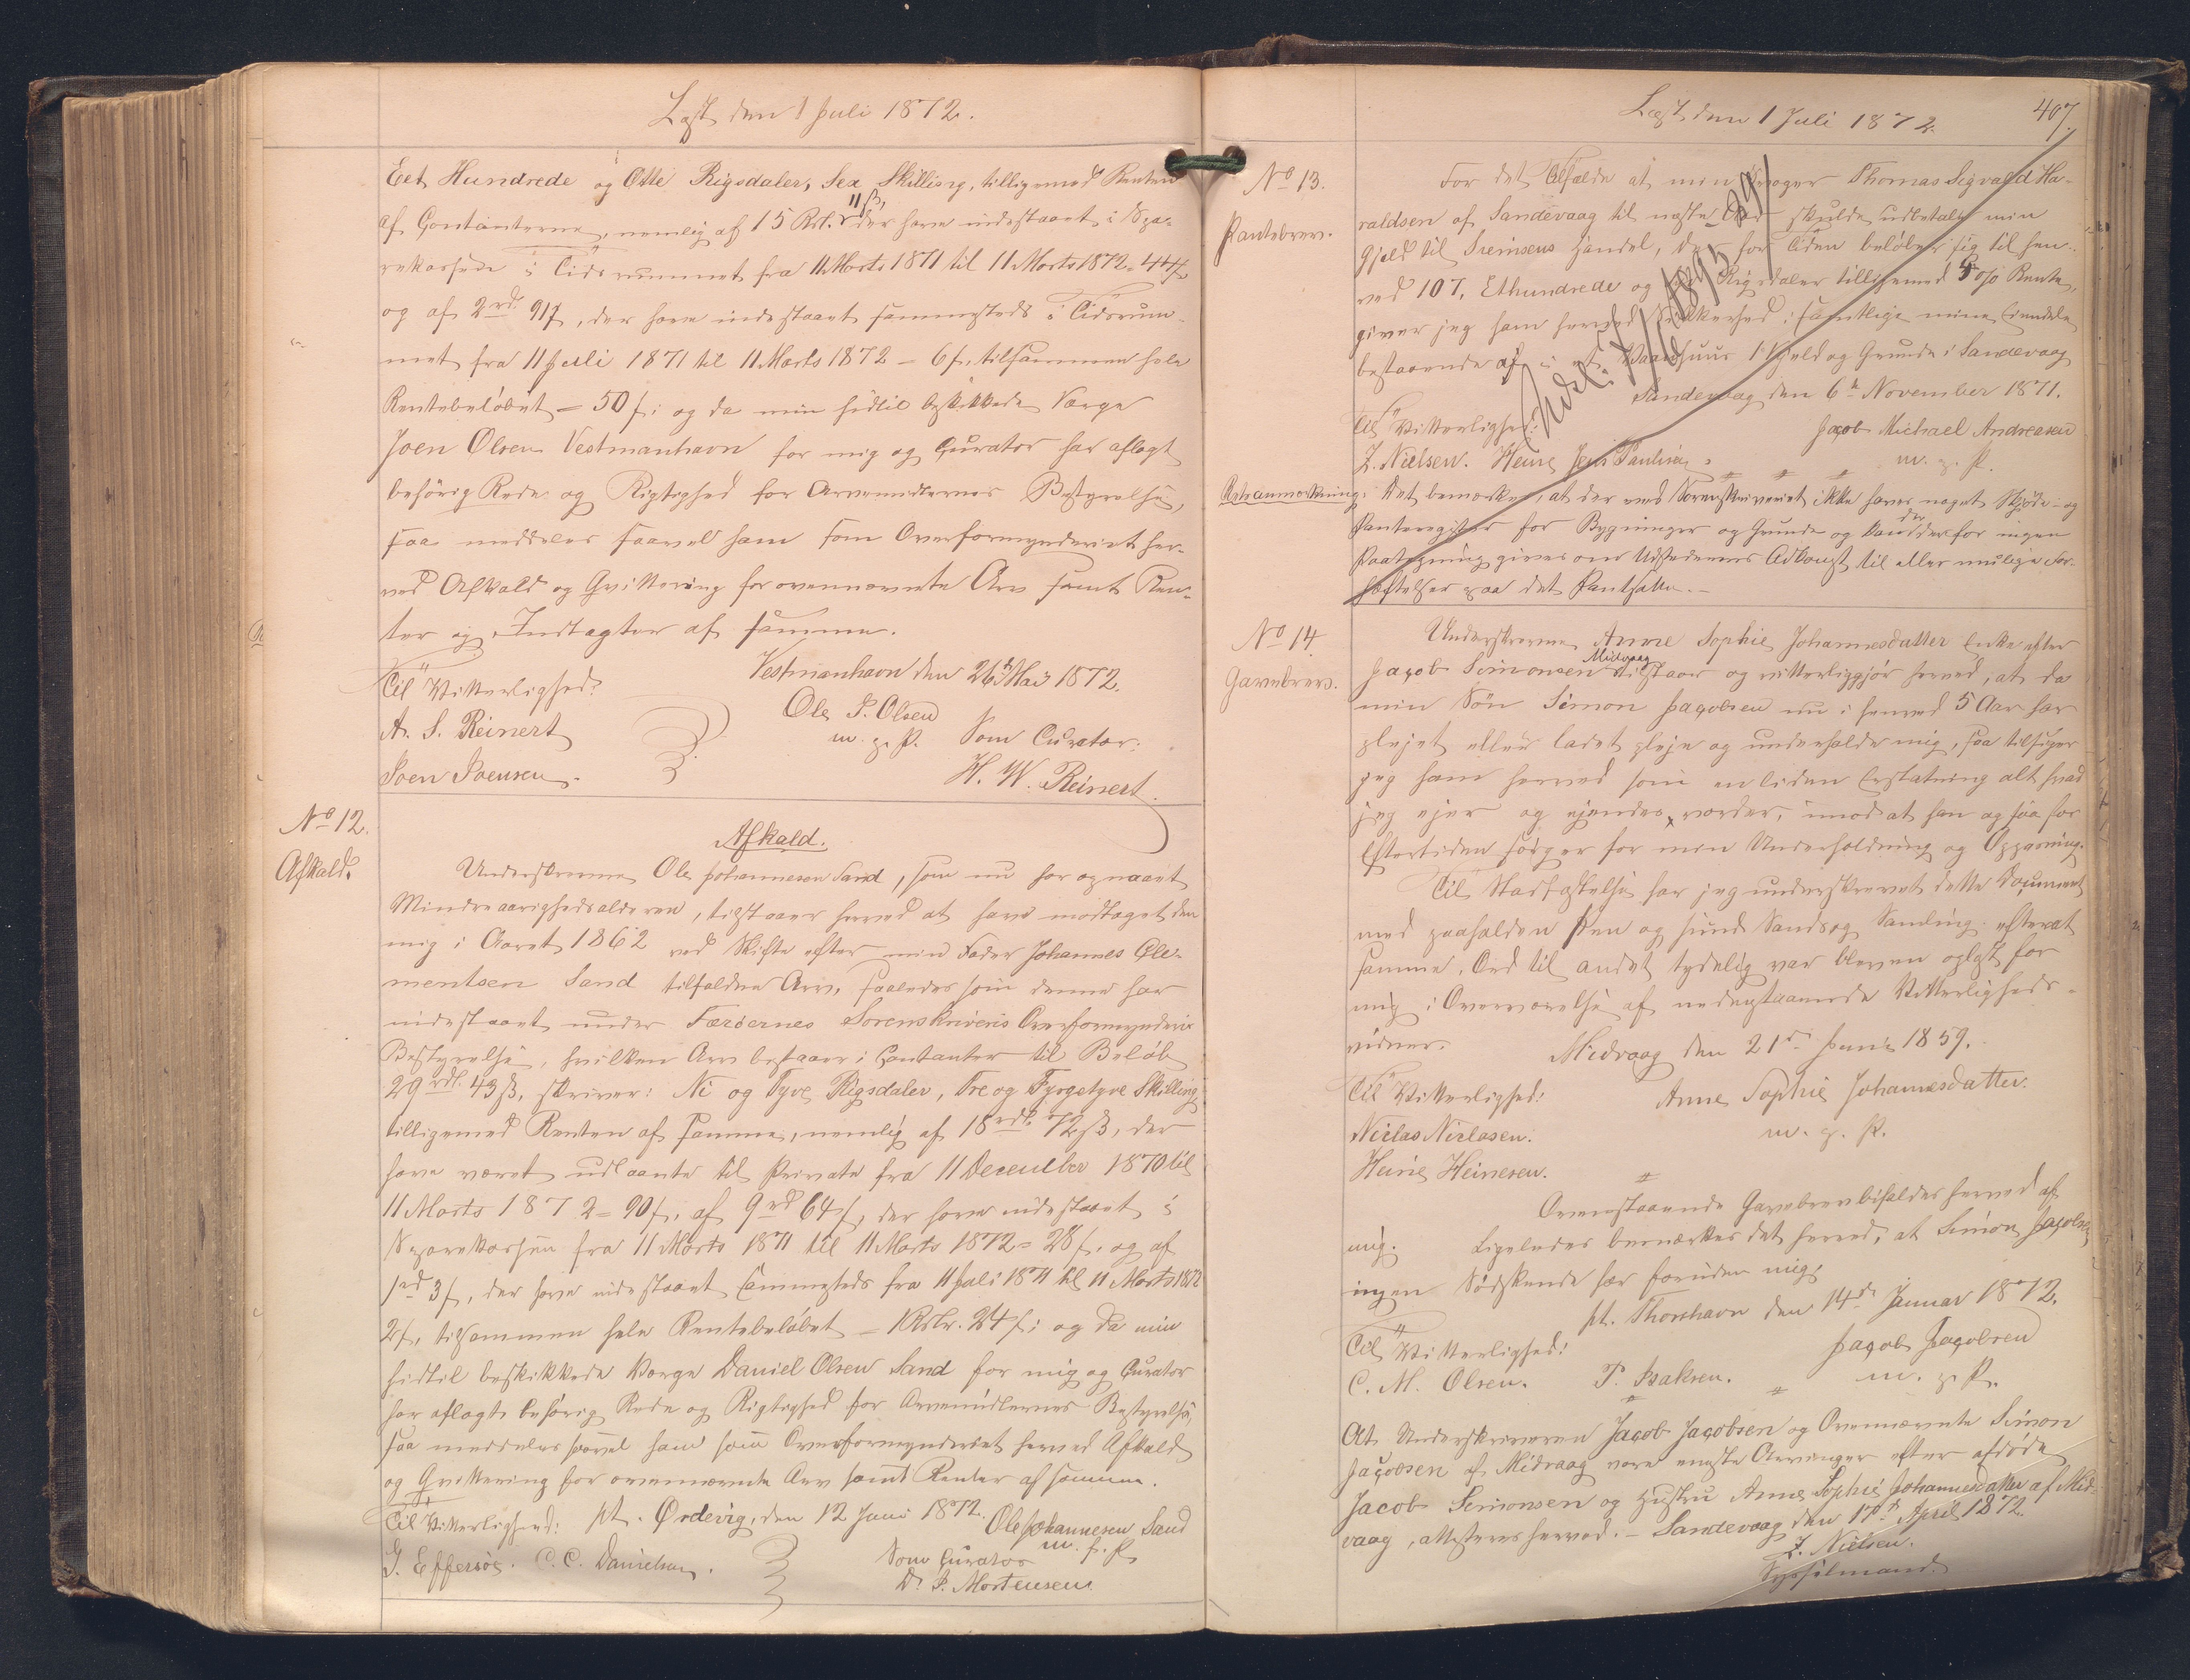 Læst den 1 Juli 1872.
Eet Hundrede og Otte Rigsdaler, Sex Skilling, tilligemed Renten
af Contanterne, nemlig af 15 Rd. 11 ß, der have indestaaet i Spa-
rekassen i Tidsrummet fra 11 Marts 1871 til 11 Marts 1872 = 44 ß
og af 2 rd. 91 ß, der have indestaaet sammesteds i Tidsrum-
met fra 11 Juli 1871 til 11 Marts 1872 - 6 ß, tilsammen hele
Rentebeløbet = 50 ß; og da min hidtil beskikkede Værge
Joen Olsen Vestmanhavn for mig og Curator har aflagt
behørig Rede og Rigtighed for Arvemidlernes Bestyrelse,
saa meddeles saavel ham som Overformynderiet her-
ved Afkald og Qvittering for ovennævnte Arv samt Ren-
ter og Indtægter af samme.
Vestmanhavn den 26 Mai 1872.
Til Vitterlighed:
Ole J. Olsen
A. S. Reinert
m. p. P. Som Curator:
Joen Joensen.
H. W. Reinert.
No 12.
Afkald.
Afkald.
Underskrevne Ole Johannesen Sand, som nu har opnaaet
Mindreaarighedsalderen, tilstaaer herved at have modtaget den
mig i Aaret 1862 ved Skifte efter min Fader Johannes Cle-
mentsen Sand tilfaldne Arv, saaledes som denne har
indestaaet under Færøernes Sorenskriveris Overformynderies
Bestyrelse, hvilken Arv bestaaer i Contanter til Beløb
29 rdl. 43 ß, skriver: Ni og Tyve Rigsdaler, Tre og Fyrgetyve Skilling
tilligemed Renten af samme, nemlig af 18 rdl. 72 ß, der
have været udlaante til Private fra 11 December 1870 til
11 Marts 1872 = 90 ß, af 9 rd 64 ß, der have indestaaet i
Sparekassen fra 11 Marts 1871 til 11 Marts 1872 = 28 ß, og af
1 rd 3 ß, der have indestaaet sammesteds fra 11 Juli 1871 til 11 Marts 1872
2 ß, tilsammen hele Rentebeløbet = 1 Rdlr. 24 ß; og da min
hidtil beskikkede Værge Daniel Olsen Sand for mig og Curator
har aflagt behørig Rede og Rigtighed for Arvemidlernes Bestyrelse,
saa meddeles saavel ham som Overformynderiet herved Afkald
og Qvittering for ovennævnte Arv samt Renter af samme.
Til Vitterlighed: pt. Ørdevig, den 12 Juni 1872. Ole Johannesen Sand
m. p. P.
G. Effersøe. C. C. Danielsen.
Som Curator
D. J. Mortensen.
Læst den 1 Juli 1872.
407.
No 13.
Pantebrev.
For det Tilfælde at min Svoger Thomas Sigvald Ha-
raldsen af Sandevaag til næste Aar skulde udbetale min
Gjeld til Handel, der for Tiden beløber sig til hen-
ved 107, Ethundrede og Rigsdaler tilligemed 4 % Rente,
giver jeg ham herved Sikkerhed i samtlige mine Eiendele
bestaaende af Vaaningshuus 1 Hjeld og Grunde i Sandevaag
Sandevaag den 6te November 1871.
Til Vitterlighed:
Jacob Michael Andreasen
Z. Nielsen. Heine Jens Paulsen
m. p. P.
Retsanmærkning: Det bemærkes, at der ved Sorenskriveriet ikke haves noget Skjøde- og
Panteregister for Bygninger og Grunde og kan der derfor ingen
Paategning gives om Udstederens Adkomst til eller mulige For-
hæftelser paa det Pantsatte.
No 14.
Gavebrev.
Underskrevne Anne Sophie Johannesdatter Enke efter
Jacob Simonsen Midvaag tilstaaer og vitterliggjør herved, at da
min Søn Simon Jacobsen nu i henved 5 Aar har
plejet eller ladet pleje og underholde mig, saa tilsiger
jeg ham herved som en liden Erstatning alt hvad
jeg ejer og ejendes vorder, imod at han og saa for
Eftertiden sørger for min Underholdning og Opvarning.
Til Stadfæstelse har jeg underskrevet dette Document
med paaholden Pen og sund Sands og Samling efterat
samme, Ord til andet tydelig var bleven oplæst for
mig i Overværelse af nedenstaaende Vitterligheds-
vidner.
Midvaag den 21de Juni 1859.
Til Vitterlighed:
Anne Sophie Johannesdatter.
Niclas Niclasen.
m. p. P.
Heine Heinesen.
Ovenstaaende Gavebrev bifaldes herved af
mig. Ligeledes bemærkes det herved, at Simon Jacobsen
ingen Sødskende har foruden mig
pt. Thorshavn den 14de Januar 1872.
Til Vitterlighed:
Jacob Jacobsen
C. M. Olsen. P. Isaksen.
m. p. P.
At Underskriveren Jacob Jacobsen og Ovennævnte Simon
Jacobsen af Midvaag vare eneste Arvinger efter afdøde
Jacob Simonsen og Hustru Anne Sophie Johannesdatter af Mid-
vaag, attesteres herved. - Sandevaag, den 17de April 1872.
Z. Nielsen.
Sysselmand.